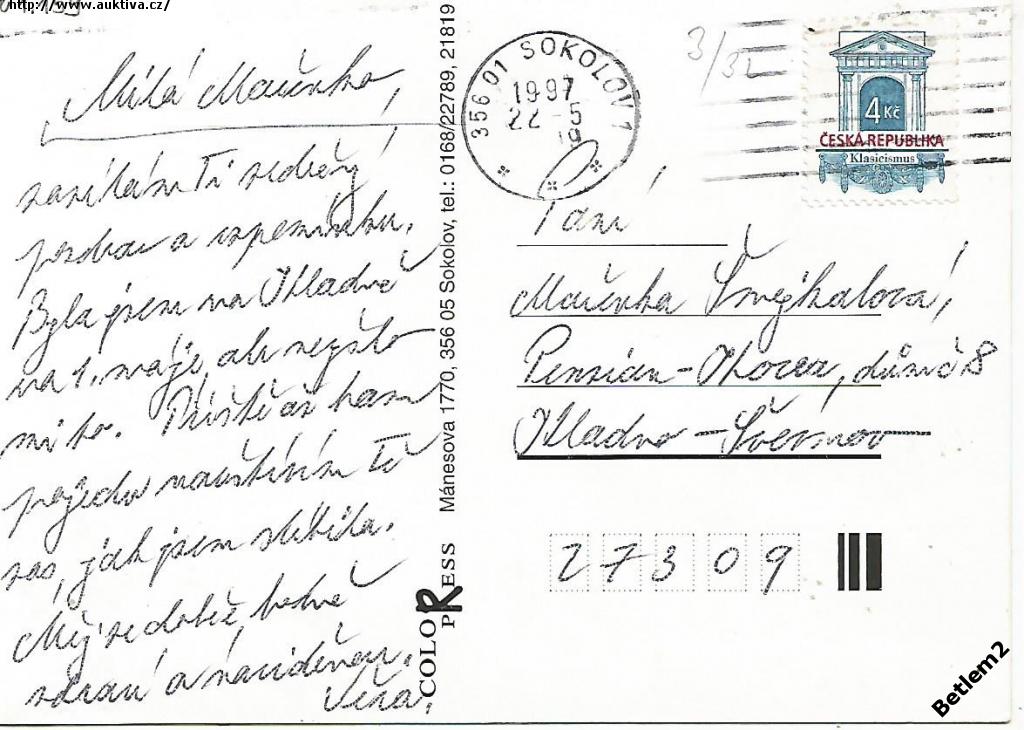 http://www.auktiva.cz/
Milá Mařenko,
zasílám Ti srdečný
pozdrav a vzpomínku.
Byla jsem na Kladně
na 1. máje, ale nevyšlo
mi to. Příště až tam
pojedu navštívím Tě
zas, jak jsem slíbila.
Měj se dobře, hodně
zdraví a nashledanou.
Věra.
COLOR PRESS Mánesova 1770, 356 05 Sokolov, tel.: 0168/22789, 21819
356 01 SOKOLOV 1
1997
22 -5
19
3/32
4 Kč
ČESKÁ REPUBLIKA
Klasicismus
Paní
Mařenka Šmejkalová,
Penzión - Hořec, dům č 8
Kladno - Švermov
27309
Betlem2